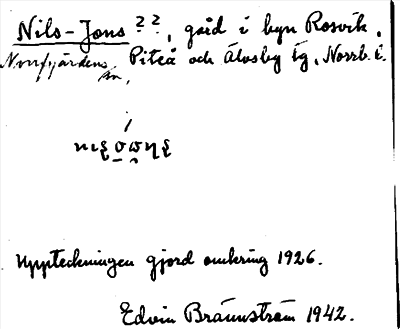 Nils-Jons ??, gård i byn Rosvik,
Norrfjärdens sn, Piteå och Älvsby tg, Norrb. l.
Uppteckningen gjord omkring 1926.
Edvin Brännström 1942.